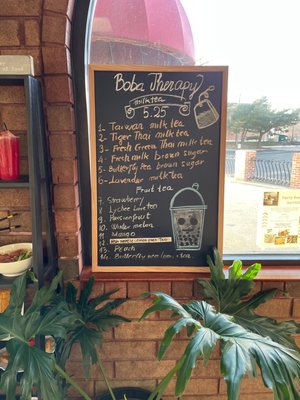 Boba Therapy
milk tea
5.25
1- Taiwan milk tea
2- Tiger Thai milk tea
3- Fresh Green Thai milk tea
4- Fresh milk brown sugar
5- Butterfly tea brown sugar
6- Lavender milk tea
Fruit tea
7. Strawberry
8. Lychee
9. Passionfruit
10. Winter melon
11. Mango
13. Peach
14. Butterfly